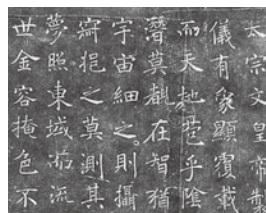 太宗文皇帝製
儀有象顯覆載
而天地苞乎陰
潛莫覩在智猶
宇宙細之則攝
寂挹之莫測其
夢照東域而流
世金容掩色不